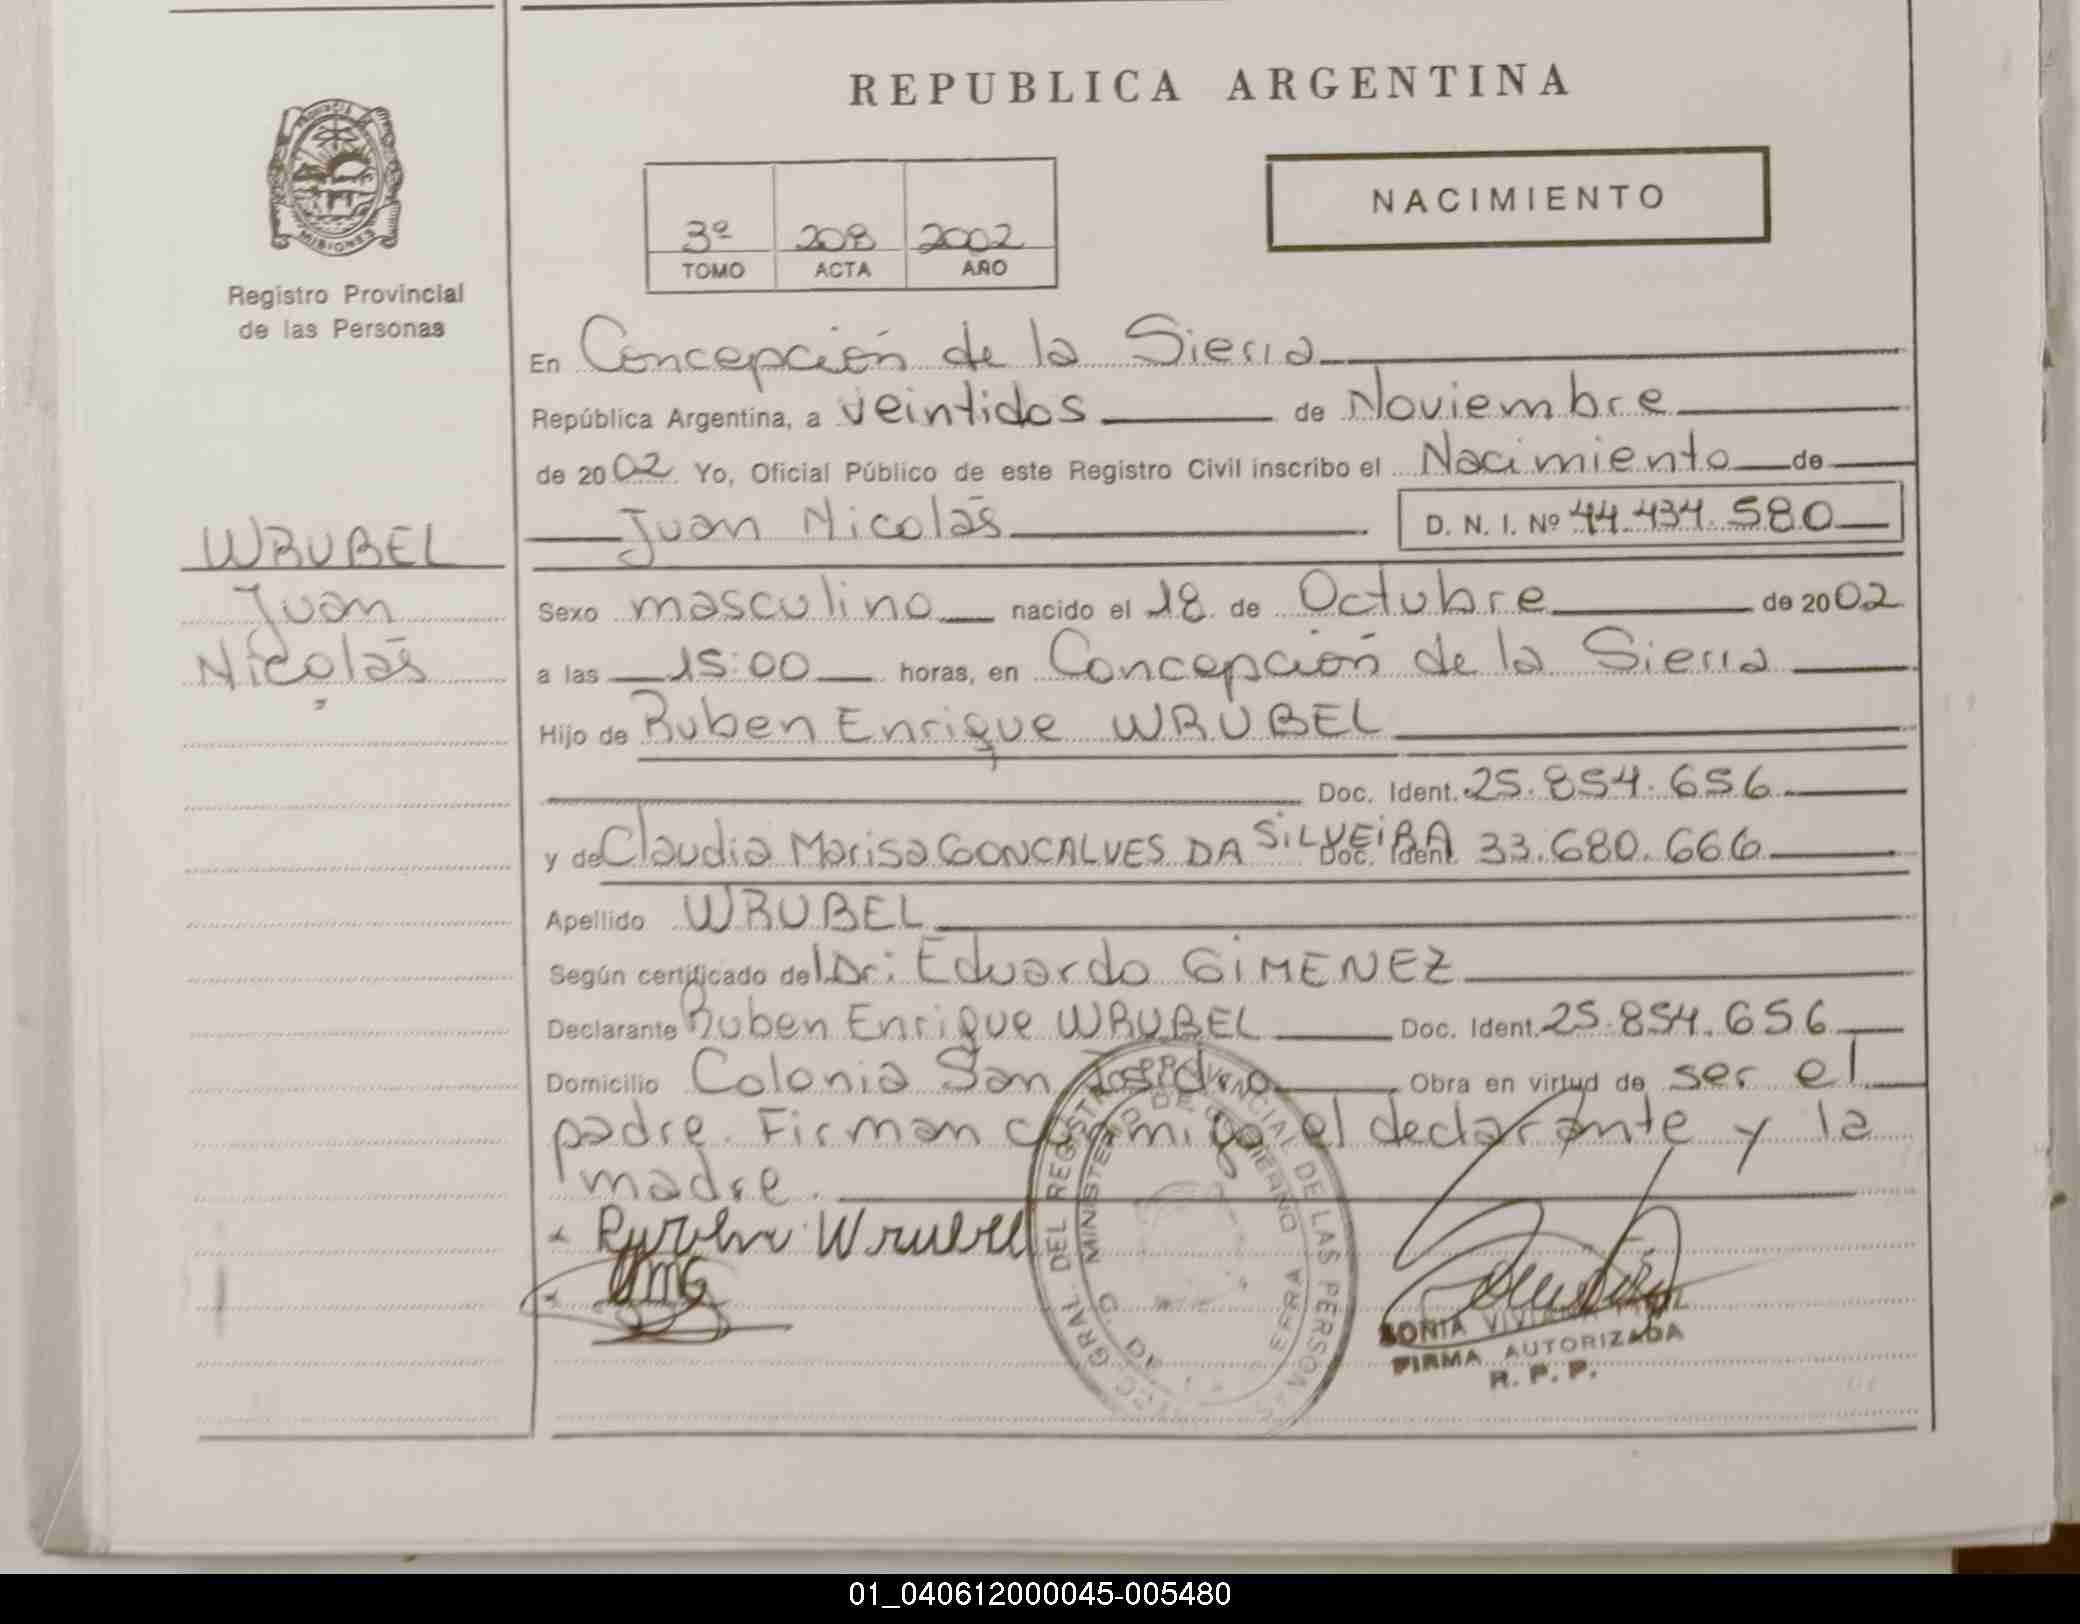 REPUBLICA ARGENTINA
PROVINCIA DE
MISIONES
Registro Provincial
de las Personas
3º 208 2002
TOMO ACTA AÑO
NACIMIENTO
En Concepción de la Sierra
República Argentina, a veintidos de Noviembre
de 2002 Yo, Oficial Público de este Registro Civil inscribo el Nacimiento de
Juan Nicolás D. N. I. Nº 44.434.580
WRUBEL
Juan
Nicolás
Sexo masculino nacido el 18 de Octubre de 2002
a las 15:00 horas, en Concepción de la Sierra
Hijo de Ruben Enrique WRUBEL
Doc. Ident. 25.854.656
y de Claudia Marisa GONCALVES DA SILVEIRA Doc. Ident. 33.680.666
Apellido WRUBEL
Según certificado del Dr: Eduardo GIMENEZ
Declarante Ruben Enrique WRUBEL Doc. Ident. 25.854.656
Domicilio Colonia San Pedro Obra en virtud de ser el
padre. Firman conmigo el declarante y la
madre.
Wrubel
GRAL. DEL REGISTRO PROVINCIAL DE LAS PERSONAS
MINISTERIO DE GOBIERNO
SONIA VIVIANA
FIRMA AUTORIZADA
R. P. P.
01_040612000045-005480